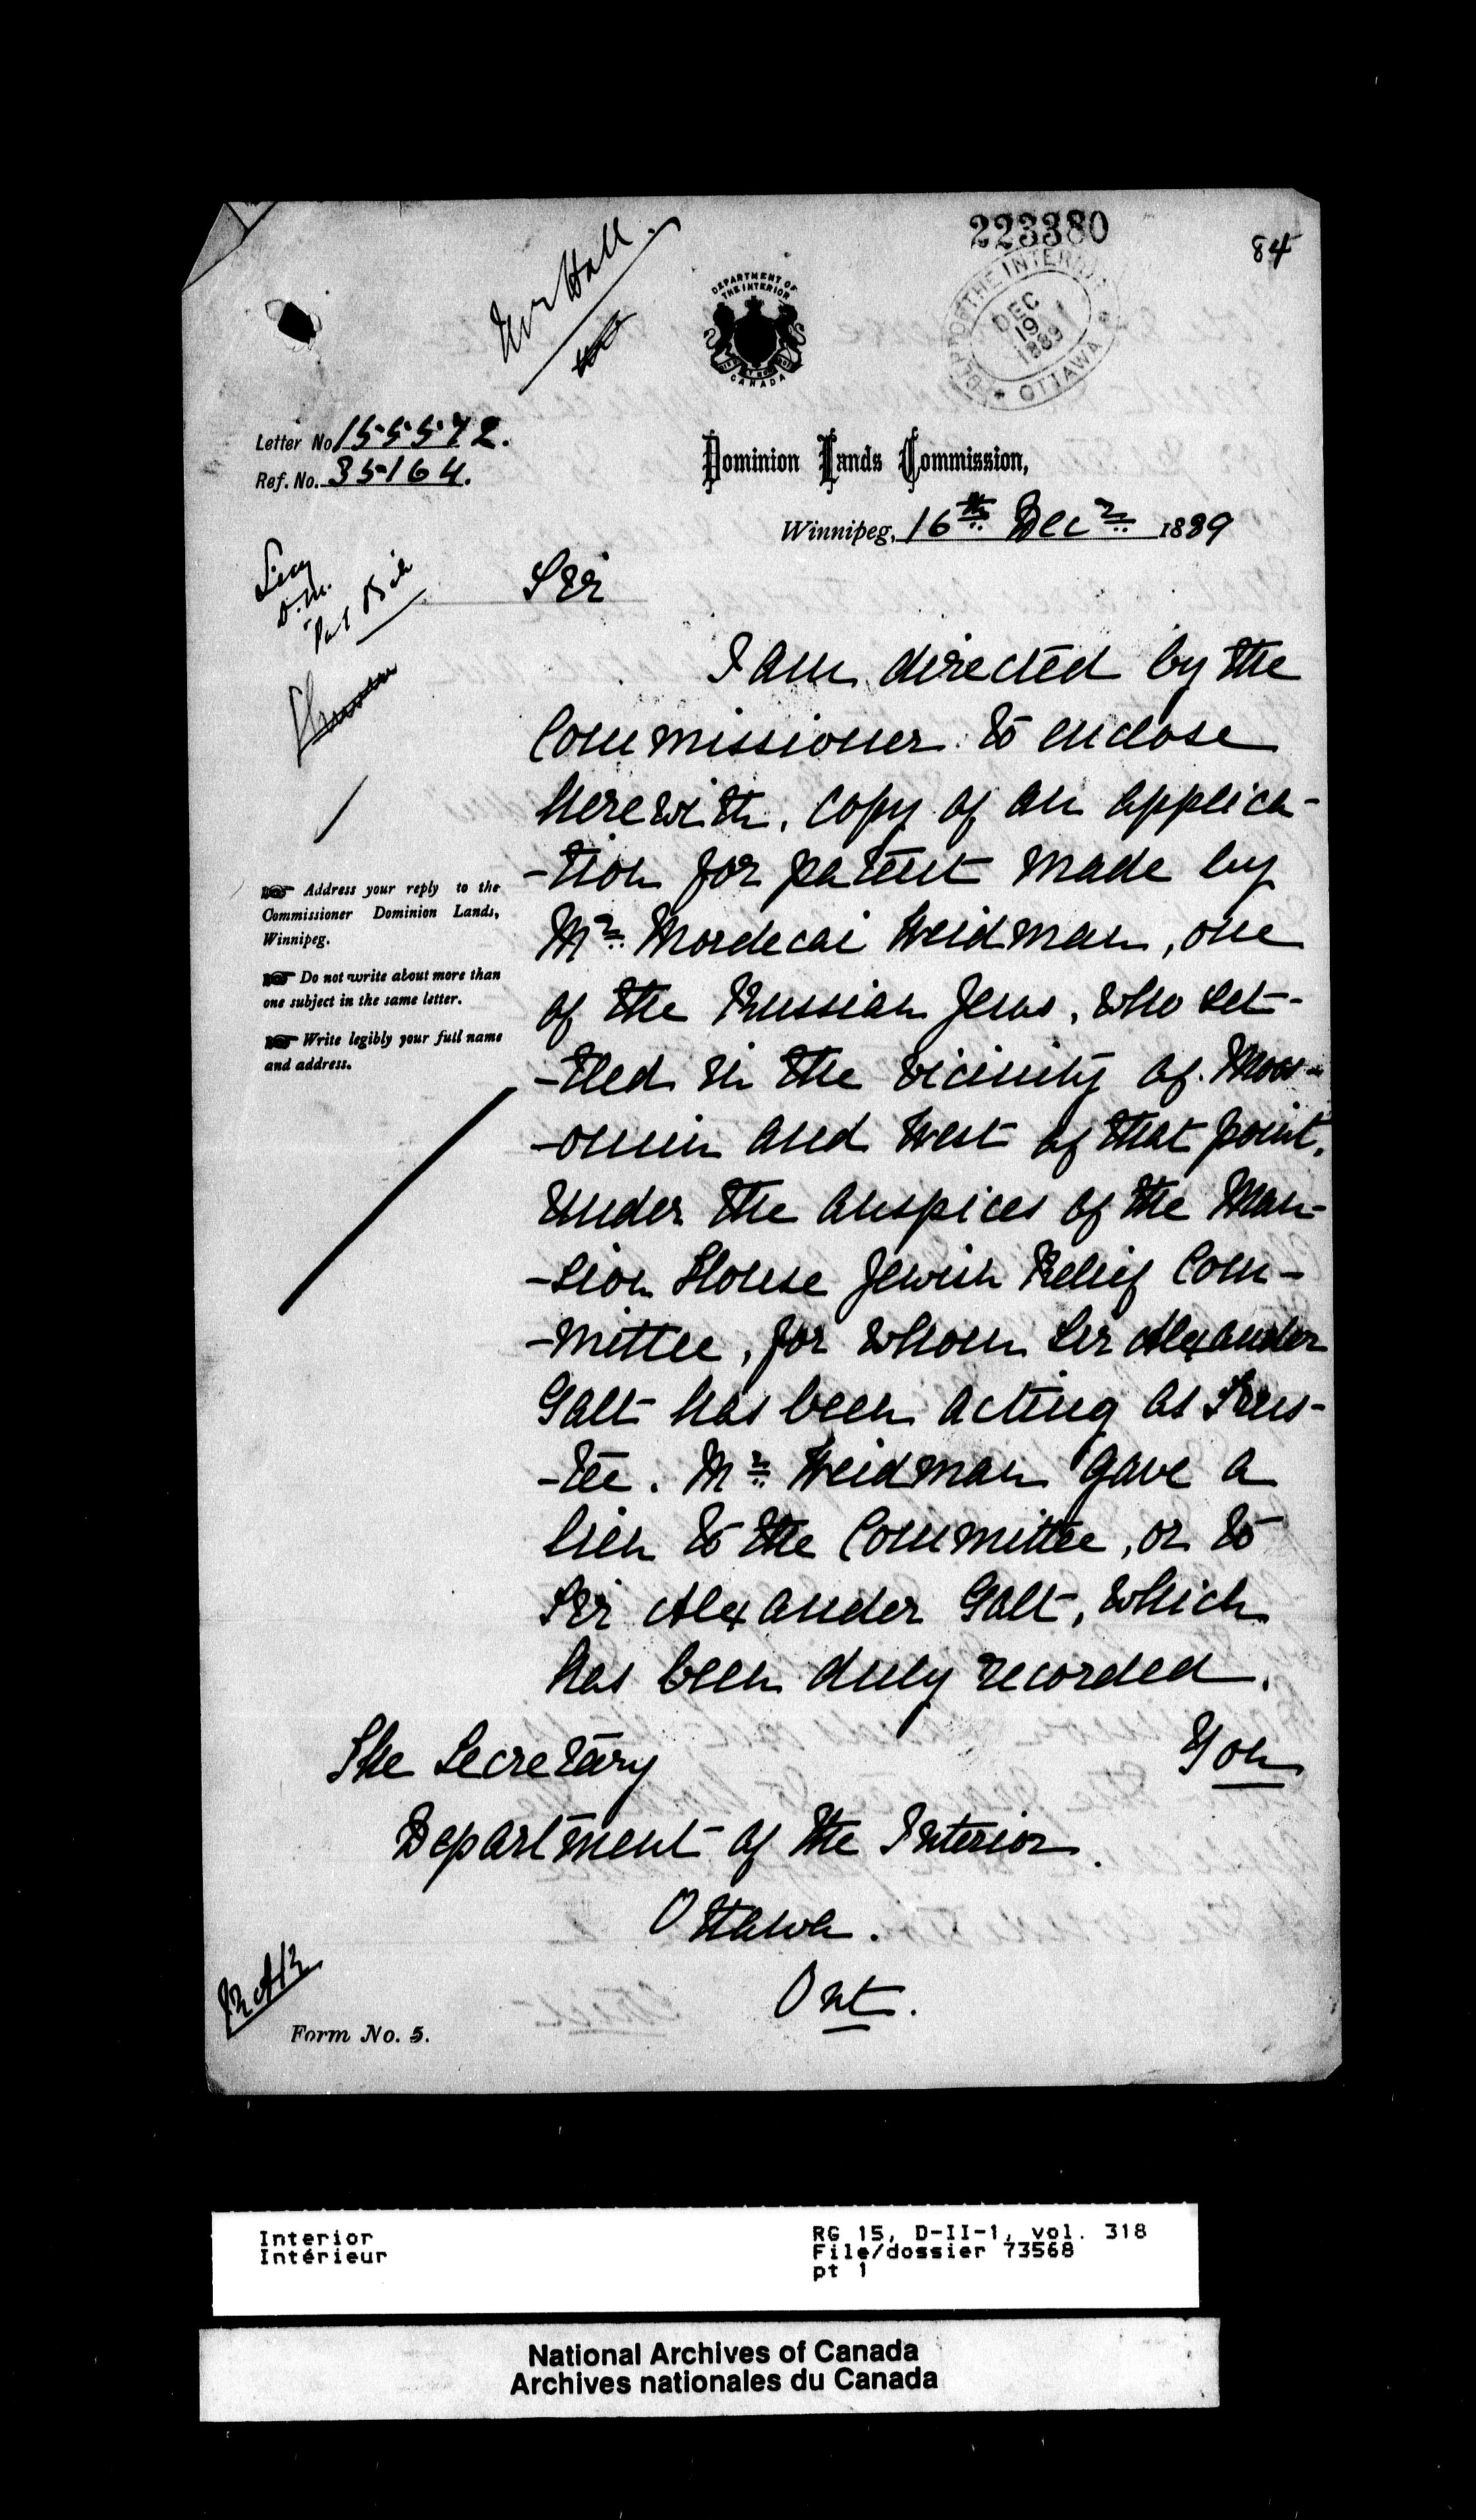 223380
84
Mr Hall.
DEPARTMENT OF
THE INTERIOR
CANADA
DEPT OF THE INTERIOR
DEC
19
1889
OTTAWA
Letter No 155572.
Ref. No. 35164.
Dominion Lands Commission,
Winnipeg, 16th Decr 1889
Secy
D.M.
Sir
I am directed by the
Commissioner to enclose
herewith, copy of an applica-
-tion for patent made by
Mr. Mordecai Weidman, one
of the Russian Jews, who set-
-tled in the vicinity of Moos-
-omin and West of that point,
under the auspices of the Man-
-sion House Jewish Relief Com-
-mittee, for whom Sir Alexander
Galt has been acting as Trus-
-tee. Mr. Weidman gave a
lien to the Committee, or to
Sir Alexander Galt, which
has been duly recorded.
You
Address your reply to the
Commissioner Dominion Lands,
Winnipeg.
Do not write about more than
one subject in the same letter.
Write legibly your full name
and address.
The Secretary
Department of the Interior.
Ottawa.
Ont.
Form No. 5.
Interior
Intérieur
RG 15, D-II-1, vol. 318
File/dossier 73568
pt 1
National Archives of Canada
Archives nationales du Canada